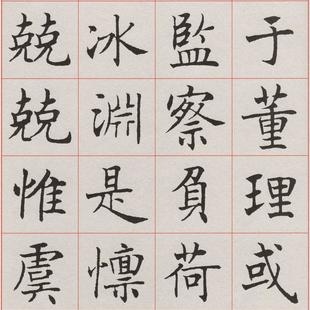 于董理或
監察負荷
冰淵是懍
兢兢惟虞